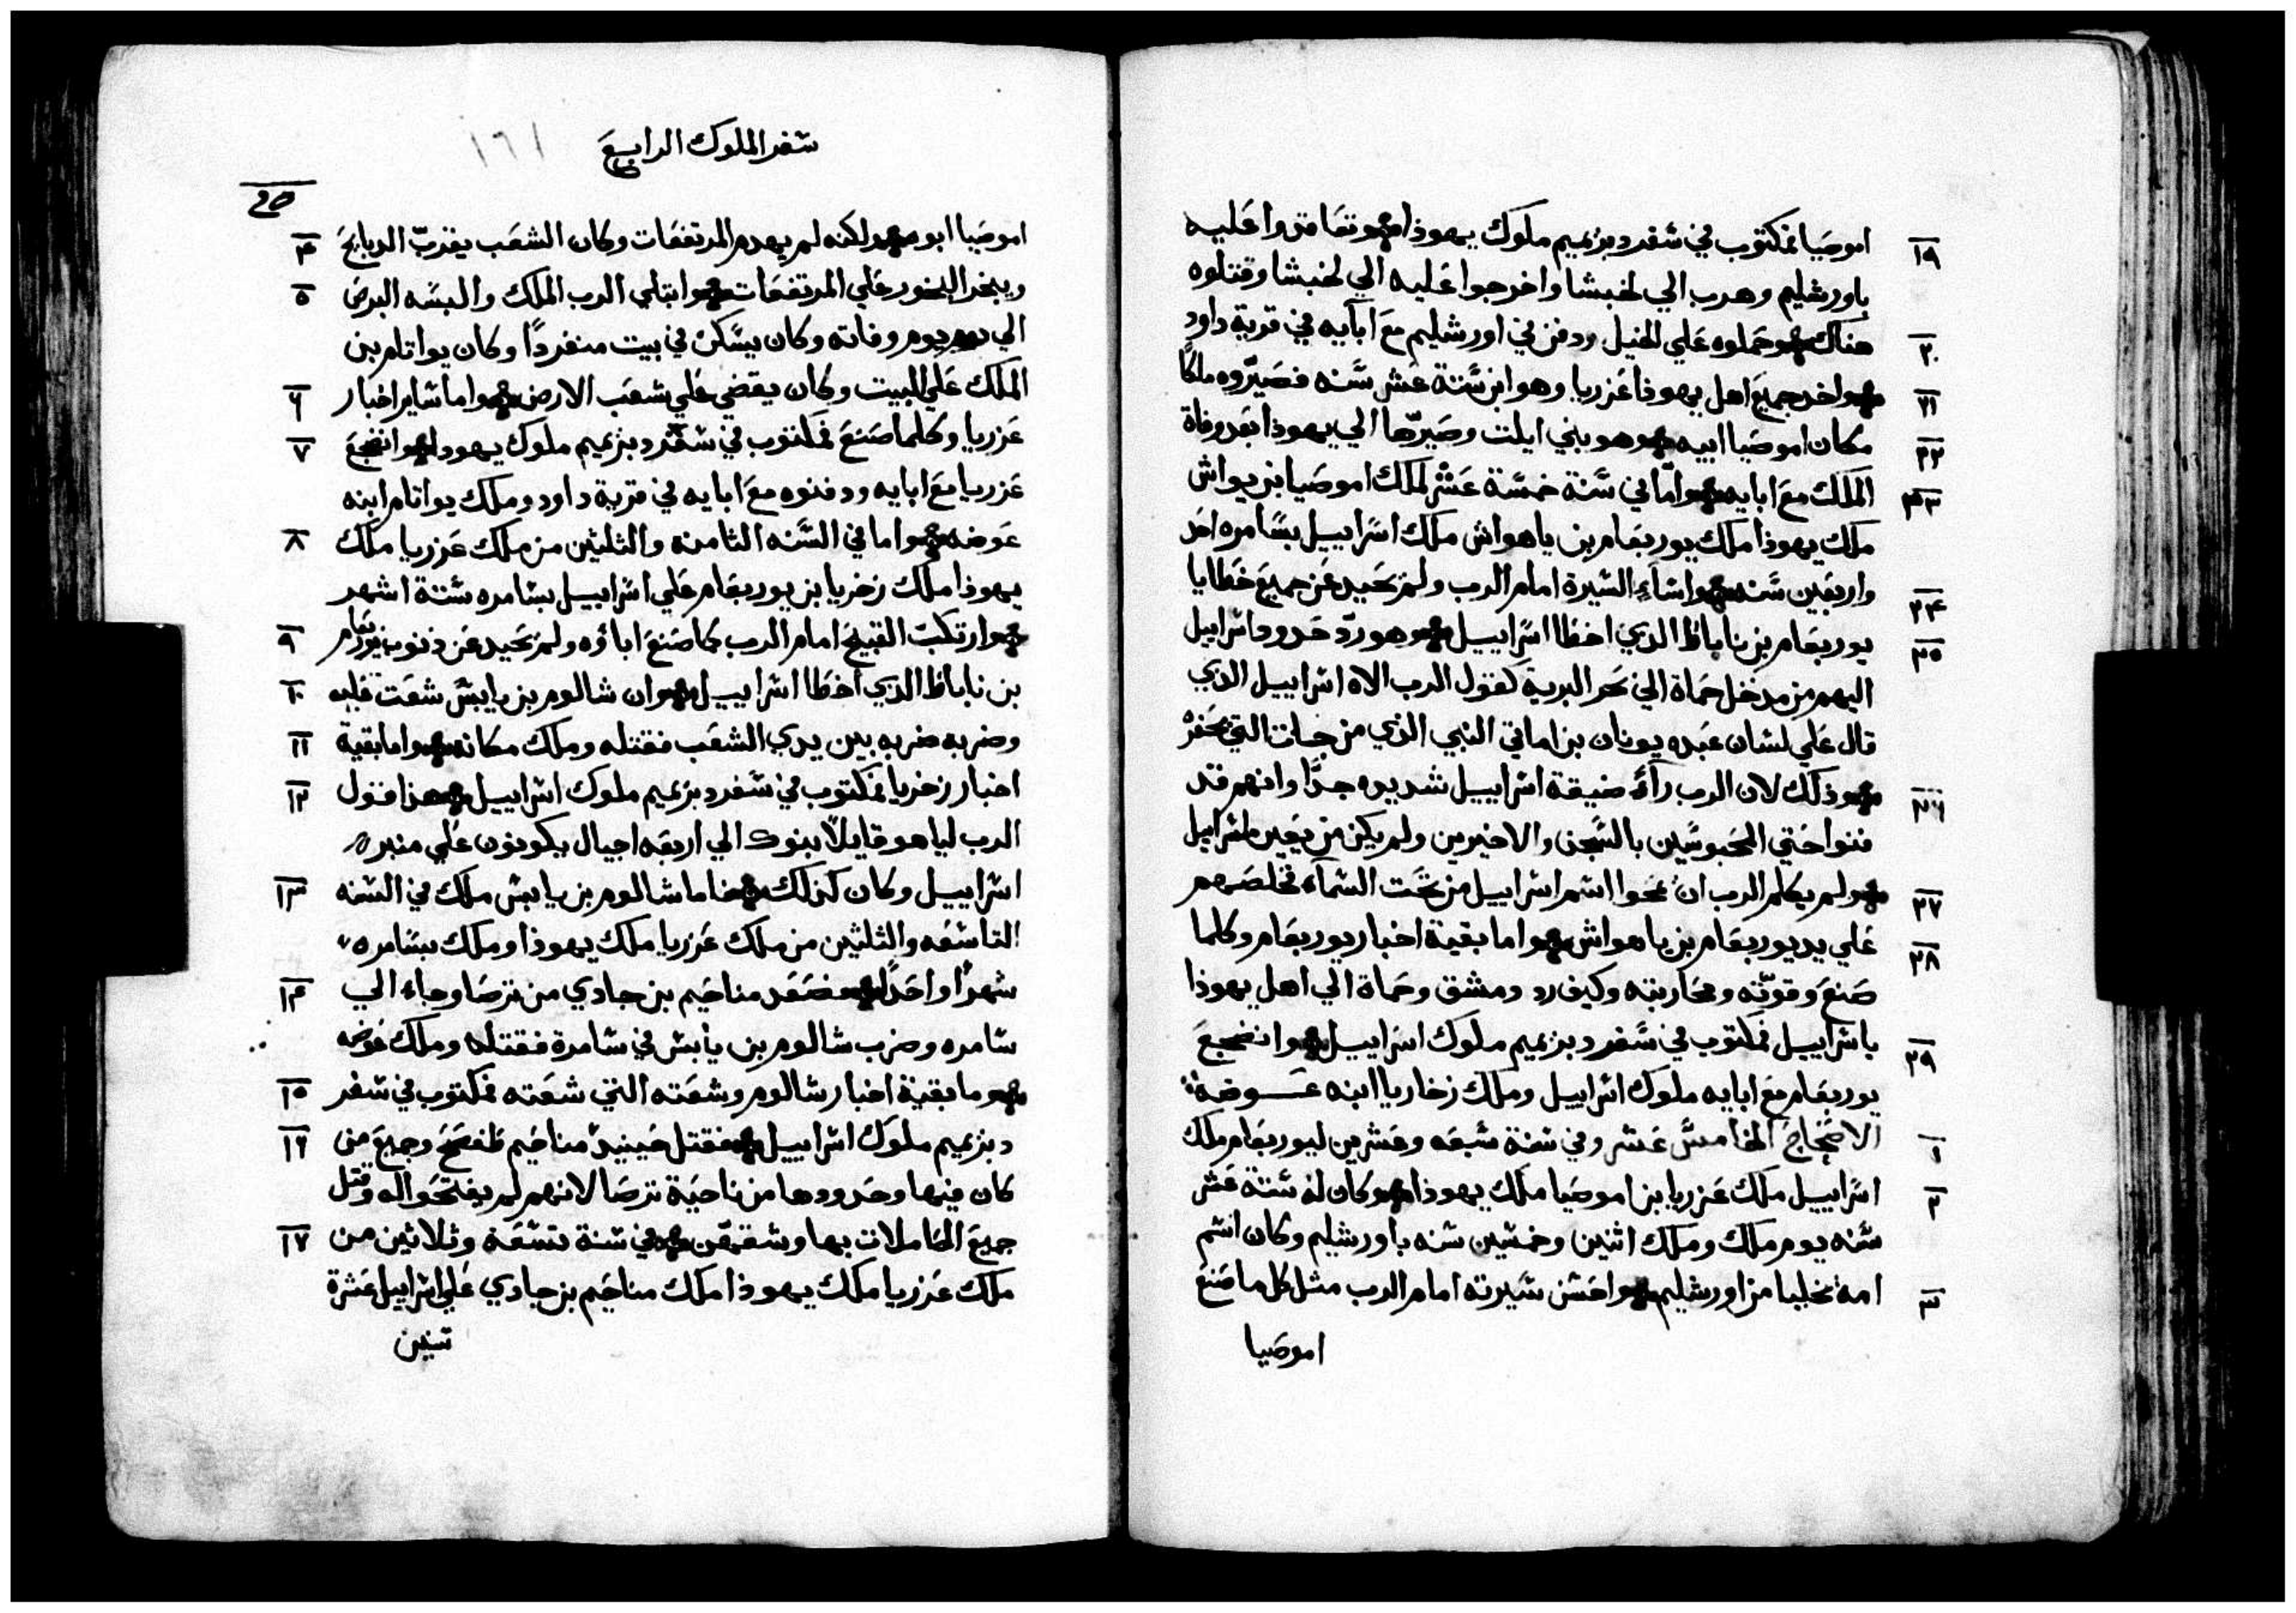 ١٩ اموصيا فمكتوب في سفر دبزيميم ملوك يهوذا وتعاقدوا عليه
باورشليم وهرب الي لخيشا واخرجوا عليه الي لخيشا وقتلوه
٢٠ هناك وحملوه علي الخيل ودفن في اورشليم مع ابآيه في قرية داود
٢١ واخد جميع اهل يهوذا عزريا وهو ابن ستة عشر سنه فصيّروه ملكاً
٢٢ مكان اموصيا ابيه وهو بني ايلت وصيرّها الي يهوذا بعد وفاة
٢٣ الملك مع ابايه وامّا في سنة خمسة عشر لملك اموصيا بن يواش
ملك يهوذا ملك يوربعام بن ياهواش ملك اسراييل بسامره احد
٢٤ واربعين سنه واساء السيرة امام الرب ولم يحيد عن جميع خطايا
٢٥ يوربعام بن ناباط الدي اخطا اسراييل وهو ردّ حدود اسراييل
اليهم من مدخل حماة الي بحر البرية كقول الرب الاه اسراييل الدي
قال علي لسان عبده يونان بن اماتي النبي الذي من جات التي بحفر
٢٦ وذلك لان الرب رآي ضيقة اسراييل شديده جدًّا وانهم قد
فنوا حتي المحبوسين بالسجن والاخيرين ولم يكن من يعين اسراييل
٢٧ ولم يكلم الرب ان يمحوا اسم اسراييل من تحت السمآء فخلصهم
٢٨ علي يد يوربعام بن ياهواش واما بقية اخبار يوربعام وكلما
صنع وقوّته ومحاربته وكيف رد دمشق وحماة الي اهل يهوذا
٢٩ باسراييل فمكتوب في سفر دبزيميم ملوك اسراييل وانضجع
يوربعام مع ابايه ملوك اسراييل وملك زخاريا ابنه عوضه
١ الاصحاح الخامس عشر وفي سنة سبعه وعشرين ليوربعام ملك
٢ اسراييل ملك عزريا بن اموصيا ملك يهوذا وكان له ستة عشر
سنه يوم ملك وملك اثنين وخمسين سنه باورشليم وكان اسم
٣ امه يخليا من اورشليم واحسن سيرته امام الرب مثل كل ما صنع
اموصيا
سفر الملوك الرابع ١٦١
٤ اموصيا ابوه لكنه لم يهدم المرتفعات وكان الشعب يقرّب الدبايح
٥ ويبخر البخور علي المرتفعات وابتلي الرب الملك والبسه البرص
الي يوم وفاته وكان يسكن في بيت منفردًا وكان يواتام بن
٦ الملك علي البيت وكان يقضي علي شعب الارض واما ساير اخبار
٧ عزريا وكلما صنع فمكتوب في سفر دبزيميم ملوك يهودا وانضجع
عزريا مع ابايه ودفنوه مع ابايه في قرية داود وملك يواتام ابنه
٨ عوضه واما في السنه الثامنة والثلثين من ملك عزريا ملك
يهوذا ملك زخريا بن يوربعام علي اسراييل بسامره ستة اشهر
٩ وارتكب القبيح امام الرب كما صنع اباؤه ولم يحيد عن ذنوب يوربعام
١٠ بن ناباط الذي اخطا اسراييل وان شالوم بن يابيش شعت عليه
١١ وضربه ضربه بين يدي الشعب فقتله وملك مكانه واما بقية
١٢ اخبار زخريا فمكتوب في سفر دبزيميم ملوك اسراييل هذا قول
الرب لياهو قايلاً بنوك الي اربعه اجيال يكونون علي منبر
١٣ اسراييل وكان كذلك فاما شالوم بن يابيش ملك في السنه
التاسعه والثلثين من ملك عزريا ملك يهوذا وملك بسامره
١٤ شهرًا واحدًا فصعد مناحيم بن جادي من ترصا وجاء الي
سامره وضرب شالوم بن يابيش في سامرة فقتله وملك عوضه
١٥ وما بقية اخبار شالوم وشعته التي شعته فمكتوب في سفر
١٦ دبزيميم ملوك اسراييل فقتل حينيد مناحيم طفسح وجميع من
كان فيها وحدودها من ناحية ترصا لانهم لم يفتحوا له وقتل
١٧ جميع الحاملات بها وشقهّن في سنة تسعة وثلاثين من
ملك عزريا ملك يهوذا ملك مناحيم بن جادي علي اسراييل عشرة
سنين